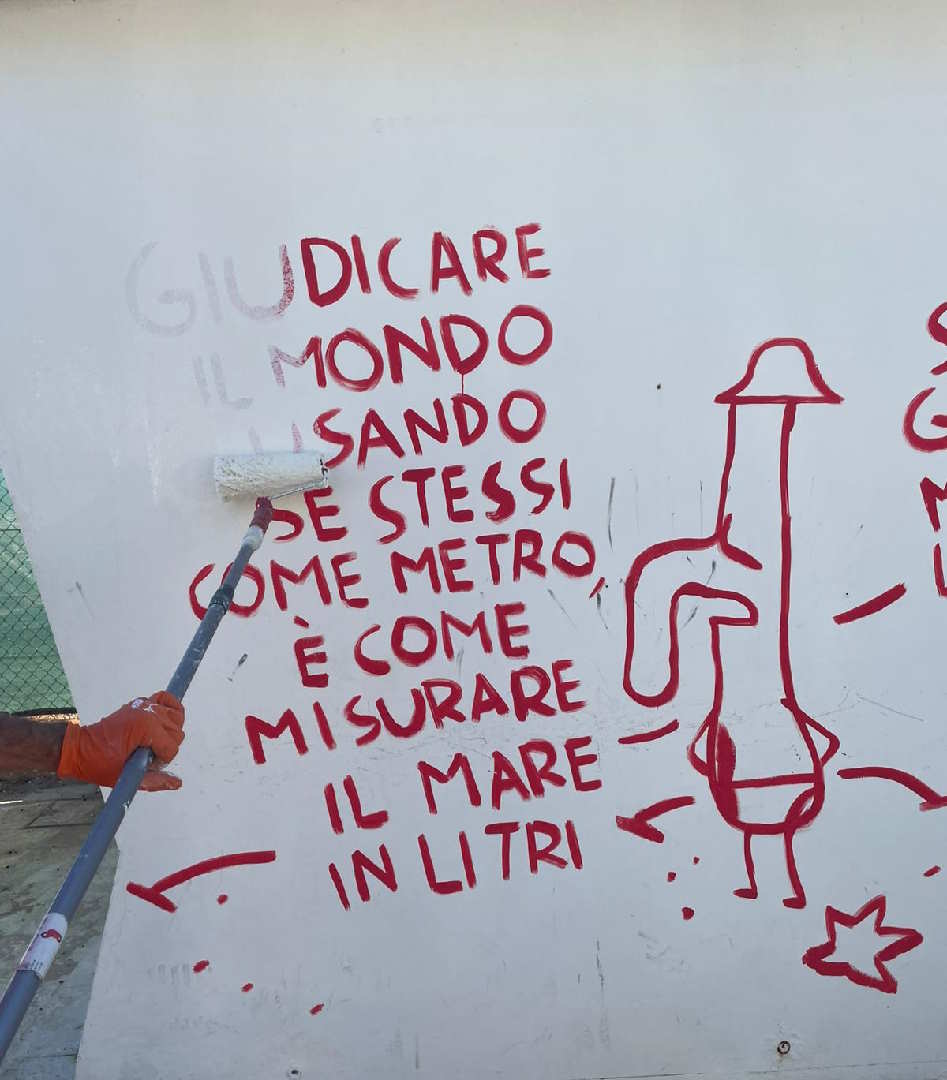 GIUDICARE
IL MONDO
USANDO
SE STESSI
COME METRO,
È COME
MISURARE
IL MARE
IN LITRI